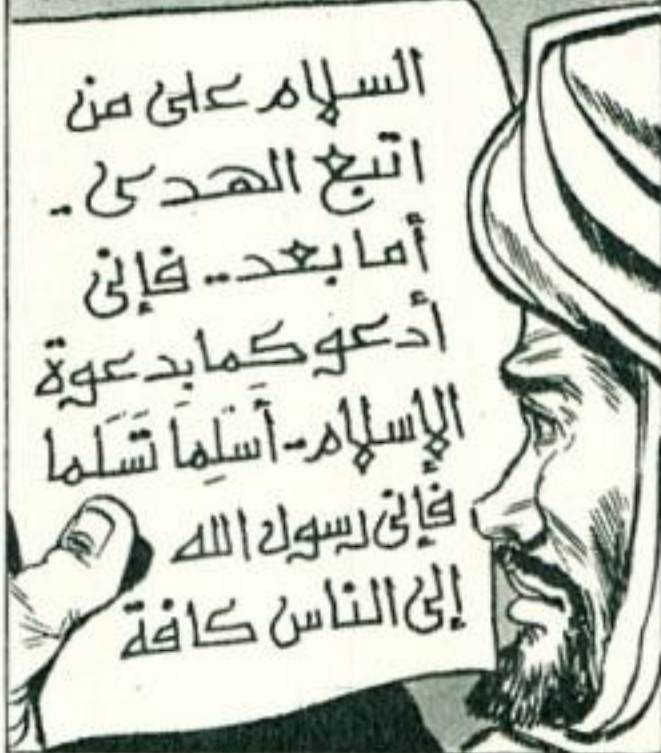 السلام على من
اتبع الهدى ..
أما بعد .. فإنى
أدعوكما بِدعوة
الإسلام - أَسْلِمَا تَسْلَما
فإنى رسول الله
إلى الناس كافة